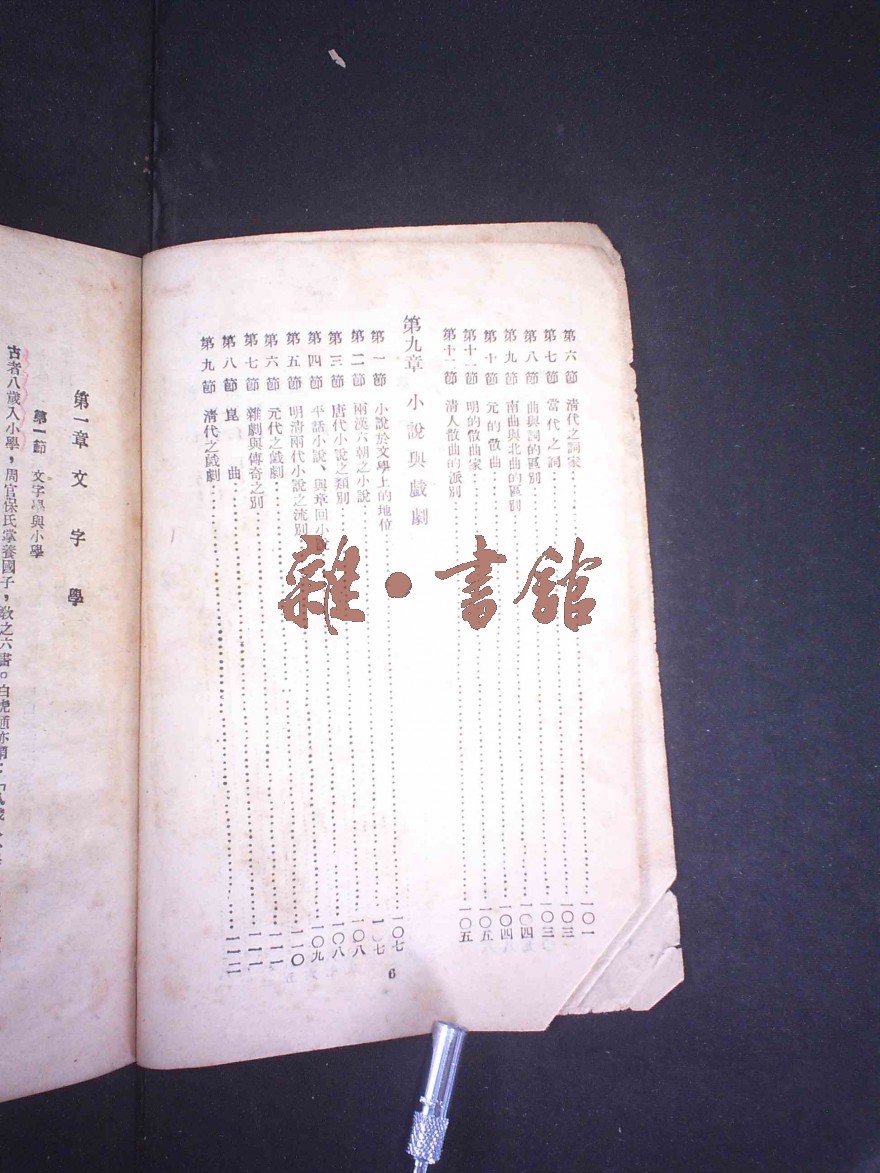 第六節 清代之詞家……一〇一
第七節 當代之詞……一〇三
第八節 曲與詞的區別……一〇三
第九節 南曲與北曲的區別……一〇四
第十節 元的散曲……一〇四
第十一節 明的散曲家……一〇五
第十二節 清人散曲的派別……一〇五
第九章 小說與戲劇
第一節 小說於文學上的地位……一〇七
第二節 兩漢六朝之小說……一〇七
第三節 唐代小說之類別……一〇八
第四節 平話小說、與章回小……一〇八
第五節 明清兩代小說之流別……一〇九
第六節 元代之戲劇……一一〇
第七節 雜劇與傳奇之別……一一一
第八節 崑曲……一一一
第九節 清代之戲劇……一一二
6
雜·書館
第一章 文字學
第一節 文字學與小學
古者八歲入小學，周官保氏掌養國子，教之六書。白虎通亦謂：「八歲